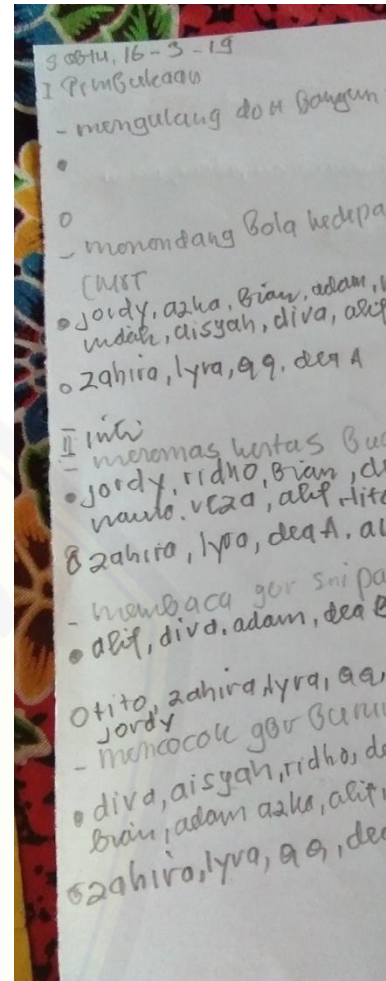 Sabtu, 16-3-19
I Pembukaan
- mengulang doa Bangun
●
○
- menendang Bola kedepa
CMST
● jordy, azka, Brian, adam,
indah, aisyah, diva, alif
○ zahira, lyra, qq, dea A
II inti
- meremas kertas Bua
● jordy, ridho, Brian, di
naulo, reza, alif, tito
8 zahira, lyra, dea A, ai
- membaca gbr sni pa
● alif, diva, adam, dea B
○ tito, zahira, lyra, qq,
jordy
- mencocok gbr Buru
● diva, aisyah, ridho, de
Brian, adam azka, alif,
○ zahira, lyra, qq, dea